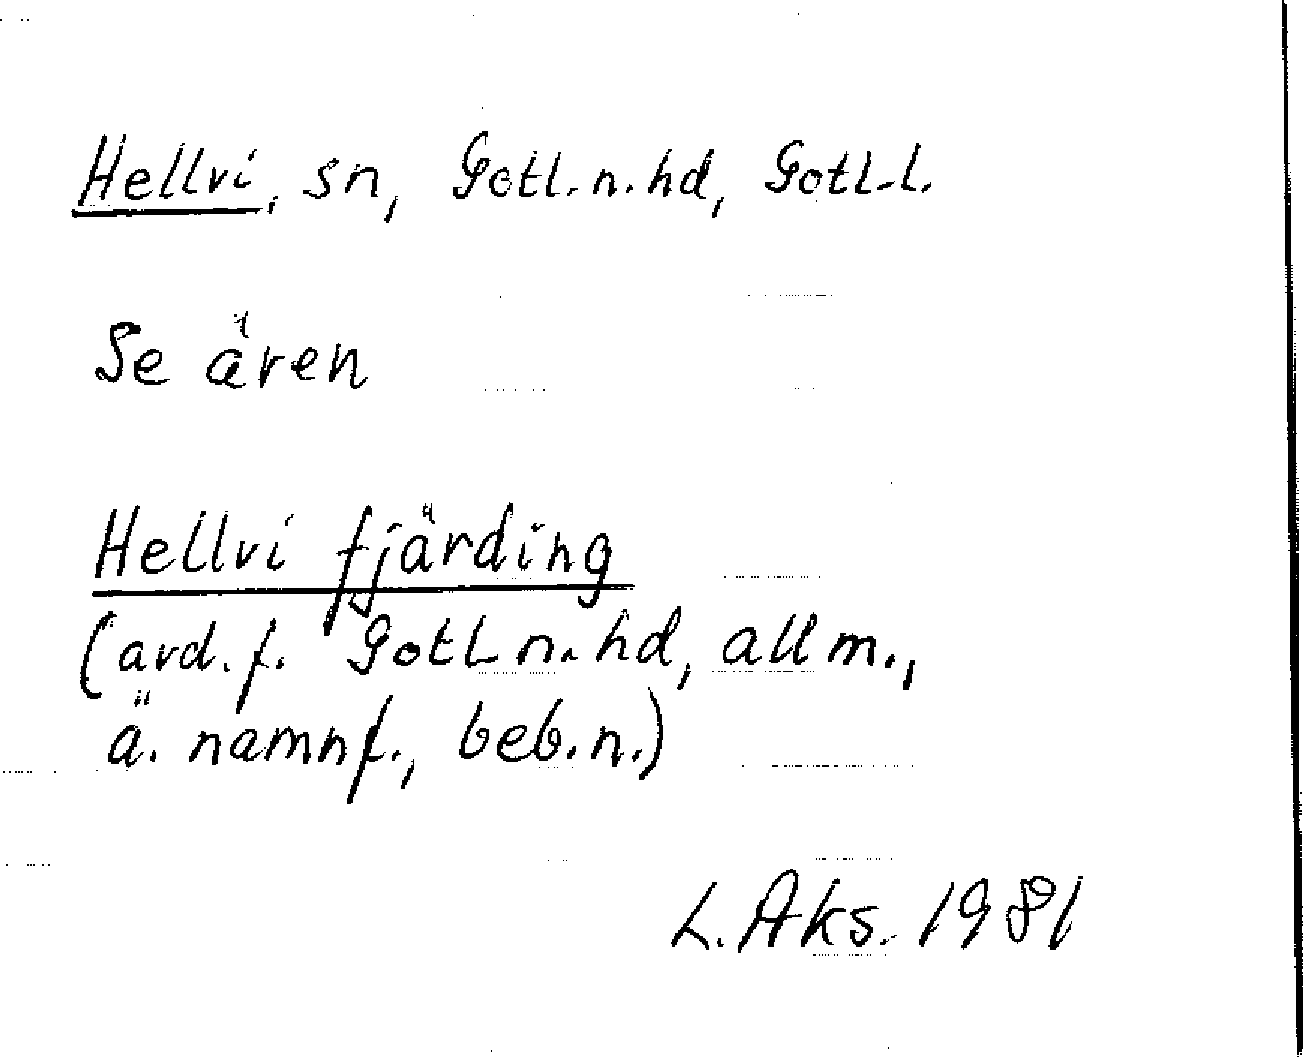 Hellvi, sn, Gotl.n.hd, Gotl.l.
Se ären
Hellvi fjärding
(avd.f. Gotl.n.hd, allm.,
ä. namnf., beb.n.)
L. Aks. 1981